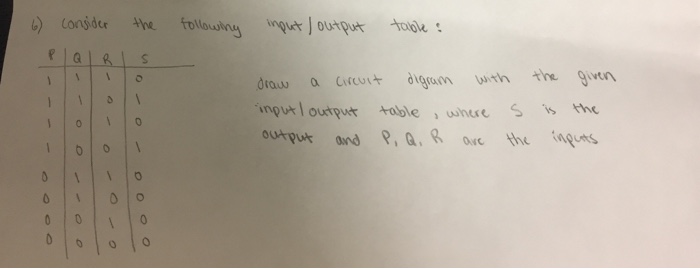 6) consider the following input/output table:
P Q R S
1 1 1 0
1 1 0 1
1 0 1 0
1 0 0 1
0 1 1 0
0 1 0 0
0 0 1 0
0 0 0 0
draw a circuit digram with the given
input/output table, where S is the
output and P, Q, R are the inputs